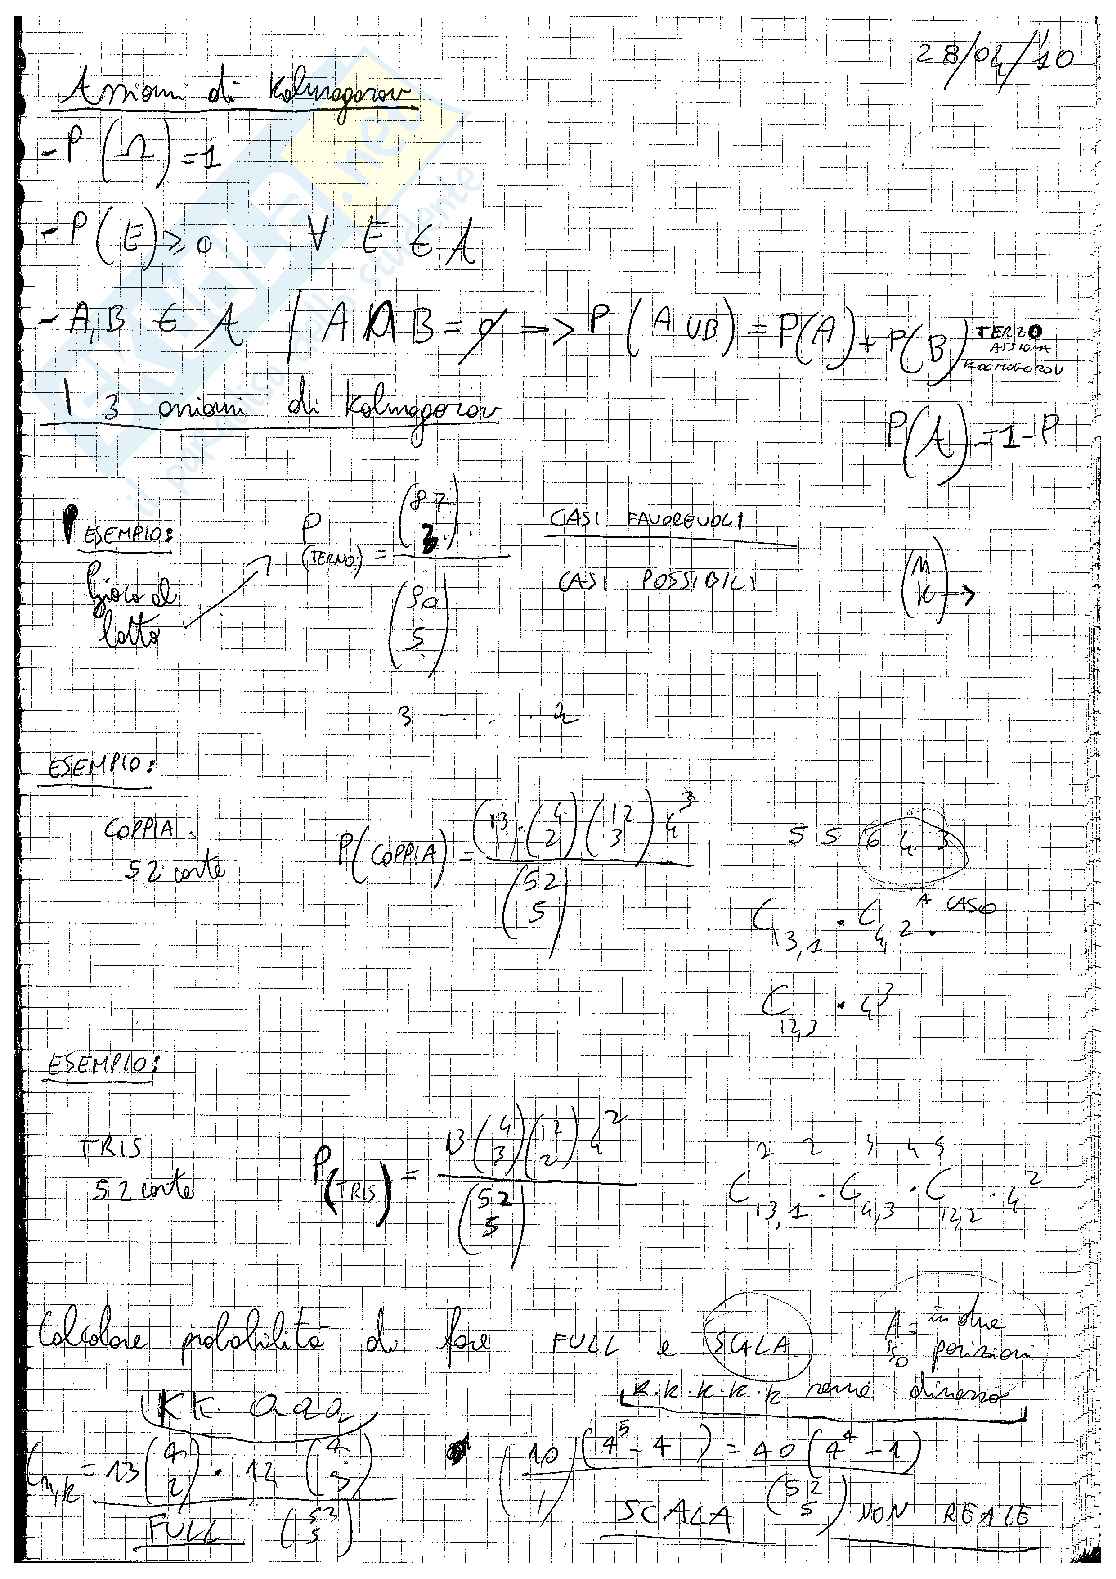 28/04/'10
Assiomi di Kolmogorov
- P(Ω) = 1
- P(E) ≥ 0 ∀ E ∈ A
- A, B ∈ A / A ∩ B = ∅ => P(A ∪ B) = P(A) + P(B) TERZO ASSIOMA KOLMOGOROV
I 3 assiomi di Kolmogorov
P(A) = 1 - P
ESEMPIO:
Gioco del lotto
P (TERNO) = (87 3) / (90 5)
CASI FAVOREVOLI
CASI POSSIBILI
(n k) →
3 . . . . 2
ESEMPIO:
COPPIA
52 carte
P(COPPIA) = (13 1)·(4 2)(12 3) 4³ / (52 5)
5 5 6 4 3
A CASO
C13,1 · C4,2 ·
C12,3 · 4³
ESEMPIO:
TRIS
52 carte
P(TRIS) = 13 (4 3)(12 2) 4² / (52 5)
2 2 3 4 5
C13,1 · C4,3 · C12,2 · 4²
Calcolare probabilità di fare FULL e SCALA
in due posizioni
KK aaa
k·k·k·k·k seme diverso
Cn,k = 13 (4 2) · 12 (4 3) / (52 5)
FULL
(10 1)(4⁵ - 4) = 40 (4⁴ - 1) / (52 5)
SCALA NON REALE